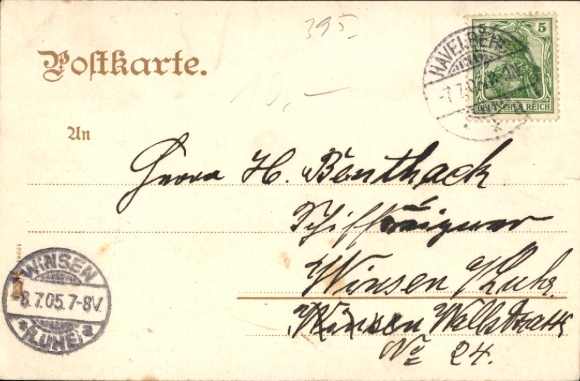 395
Postkarte.
HAVELBERG
-7.7.05
5
DEUTSCHES REICH
10,-
An
Herrn H. Benthack
Schiffseigner
Winsen / Luhe
Winsen
No 24.
WINSEN
-8.7.05.7-8V.
* (LUHE) a